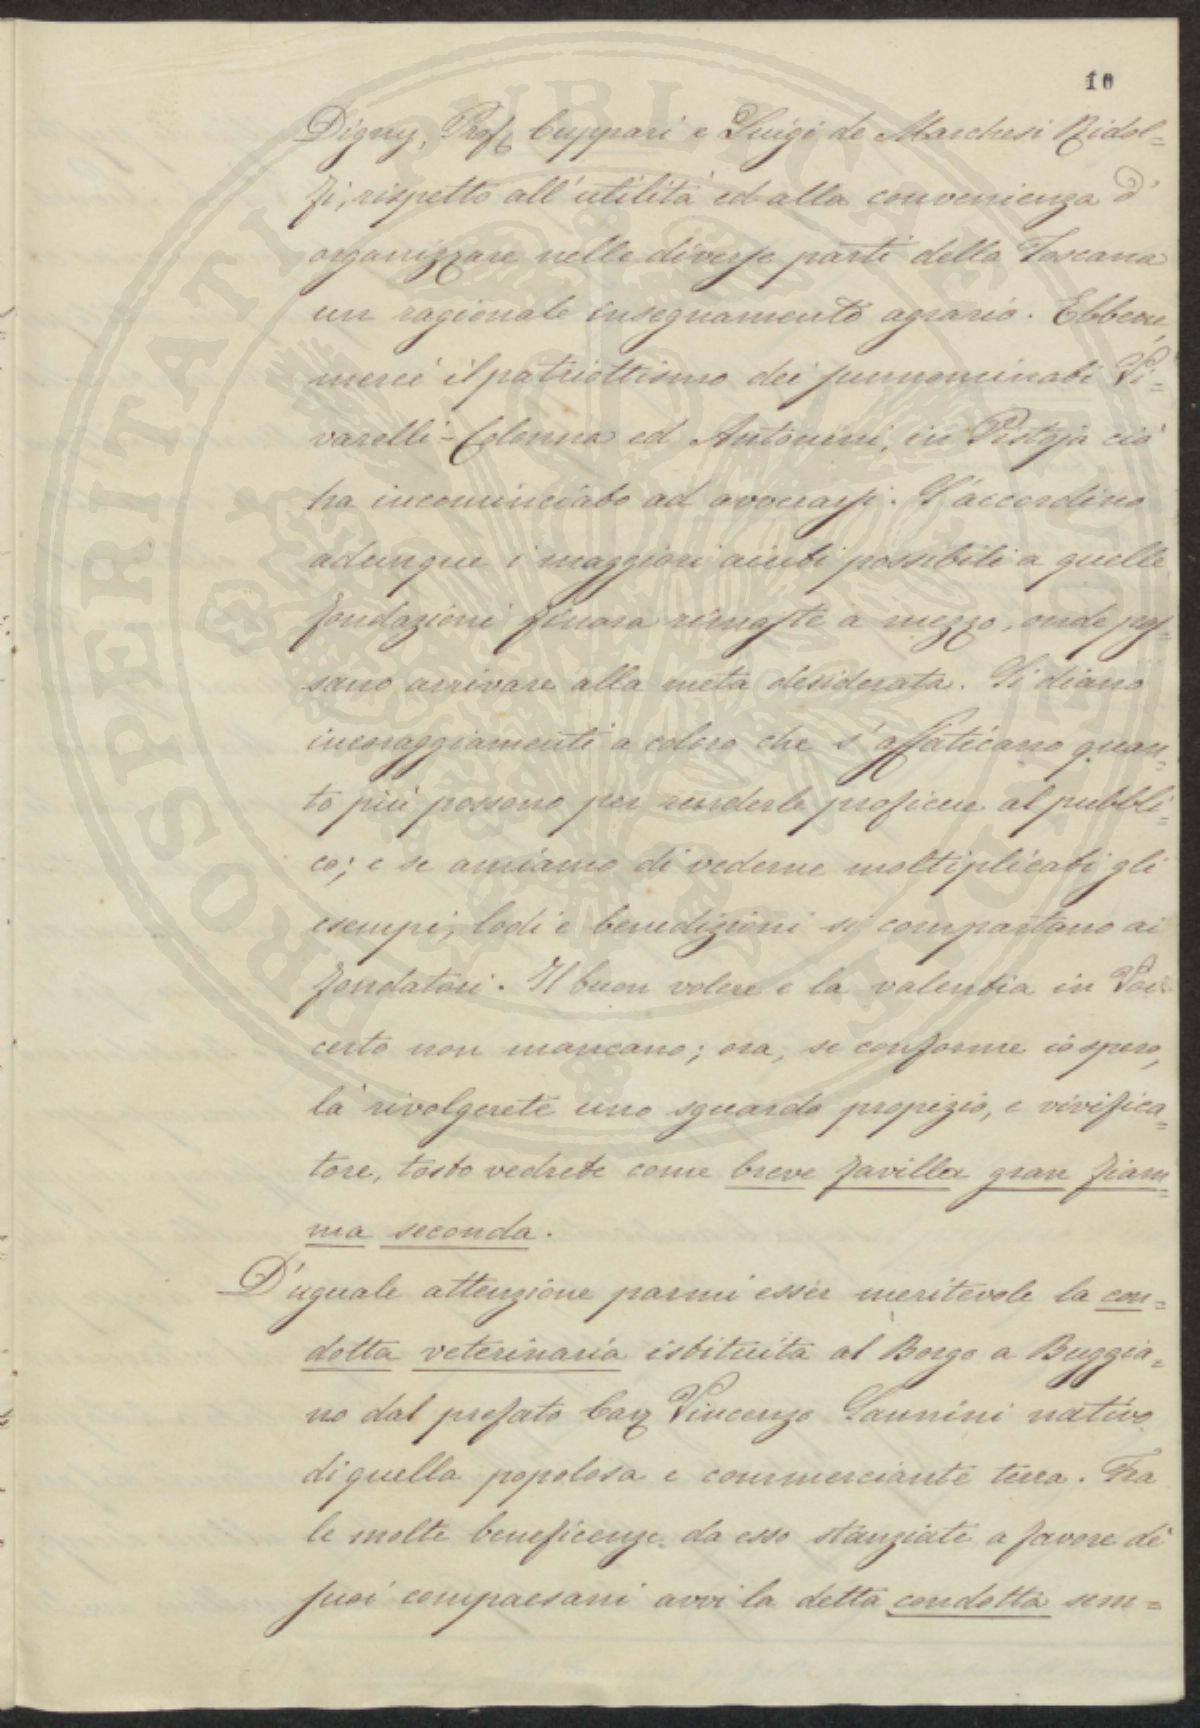 10
Digny, Prof. Cuppari e Luigi de Marchesi Ridol=
fi, rispetto all'utilità ed alla convenienza d'
organizzare nelle diverse parti della Toscana
un ragionale insegnamento agrario. Ebbene,
mercé il patriottismo dei sunnominati Vi=
varelli-Colonna ed Antonini, in Pistoja ciò
ha incominciato ad avverarsi. S'accordino
adunque i maggiori aiuti possibili a quelle
fondazioni finora rimaste a mezzo, onde pos=
sano arrivare alla meta desiderata. Si diano
incoraggiamenti a coloro che s'affaticano quan=
to più possono per renderle proficue al pubbli=
co; e se amiamo di vederne moltiplicati gli
esempi, lodi e benedizioni si compartano ai
fondatori. Il buon volere e la valentia in Voi
certo non mancano; ora, se conforme io spero,
là rivolgerete uno sguardo propizio, e vivifica=
tore, tosto vedrete come breve favilla gran fiam=
ma seconda.
D'uguale attenzione parmi esser meritevole la con=
dotta veterinaria istituita al Borgo a Buggia=
no dal prefato Cav. Vincenzo Sannini nativo
di quella popolosa e commerciante terra. Fra
le molte beneficenze da esso stanziate a favore de'
suoi compaesani avvi la detta condotta sem=
PROSPERITATI PUBLICAE